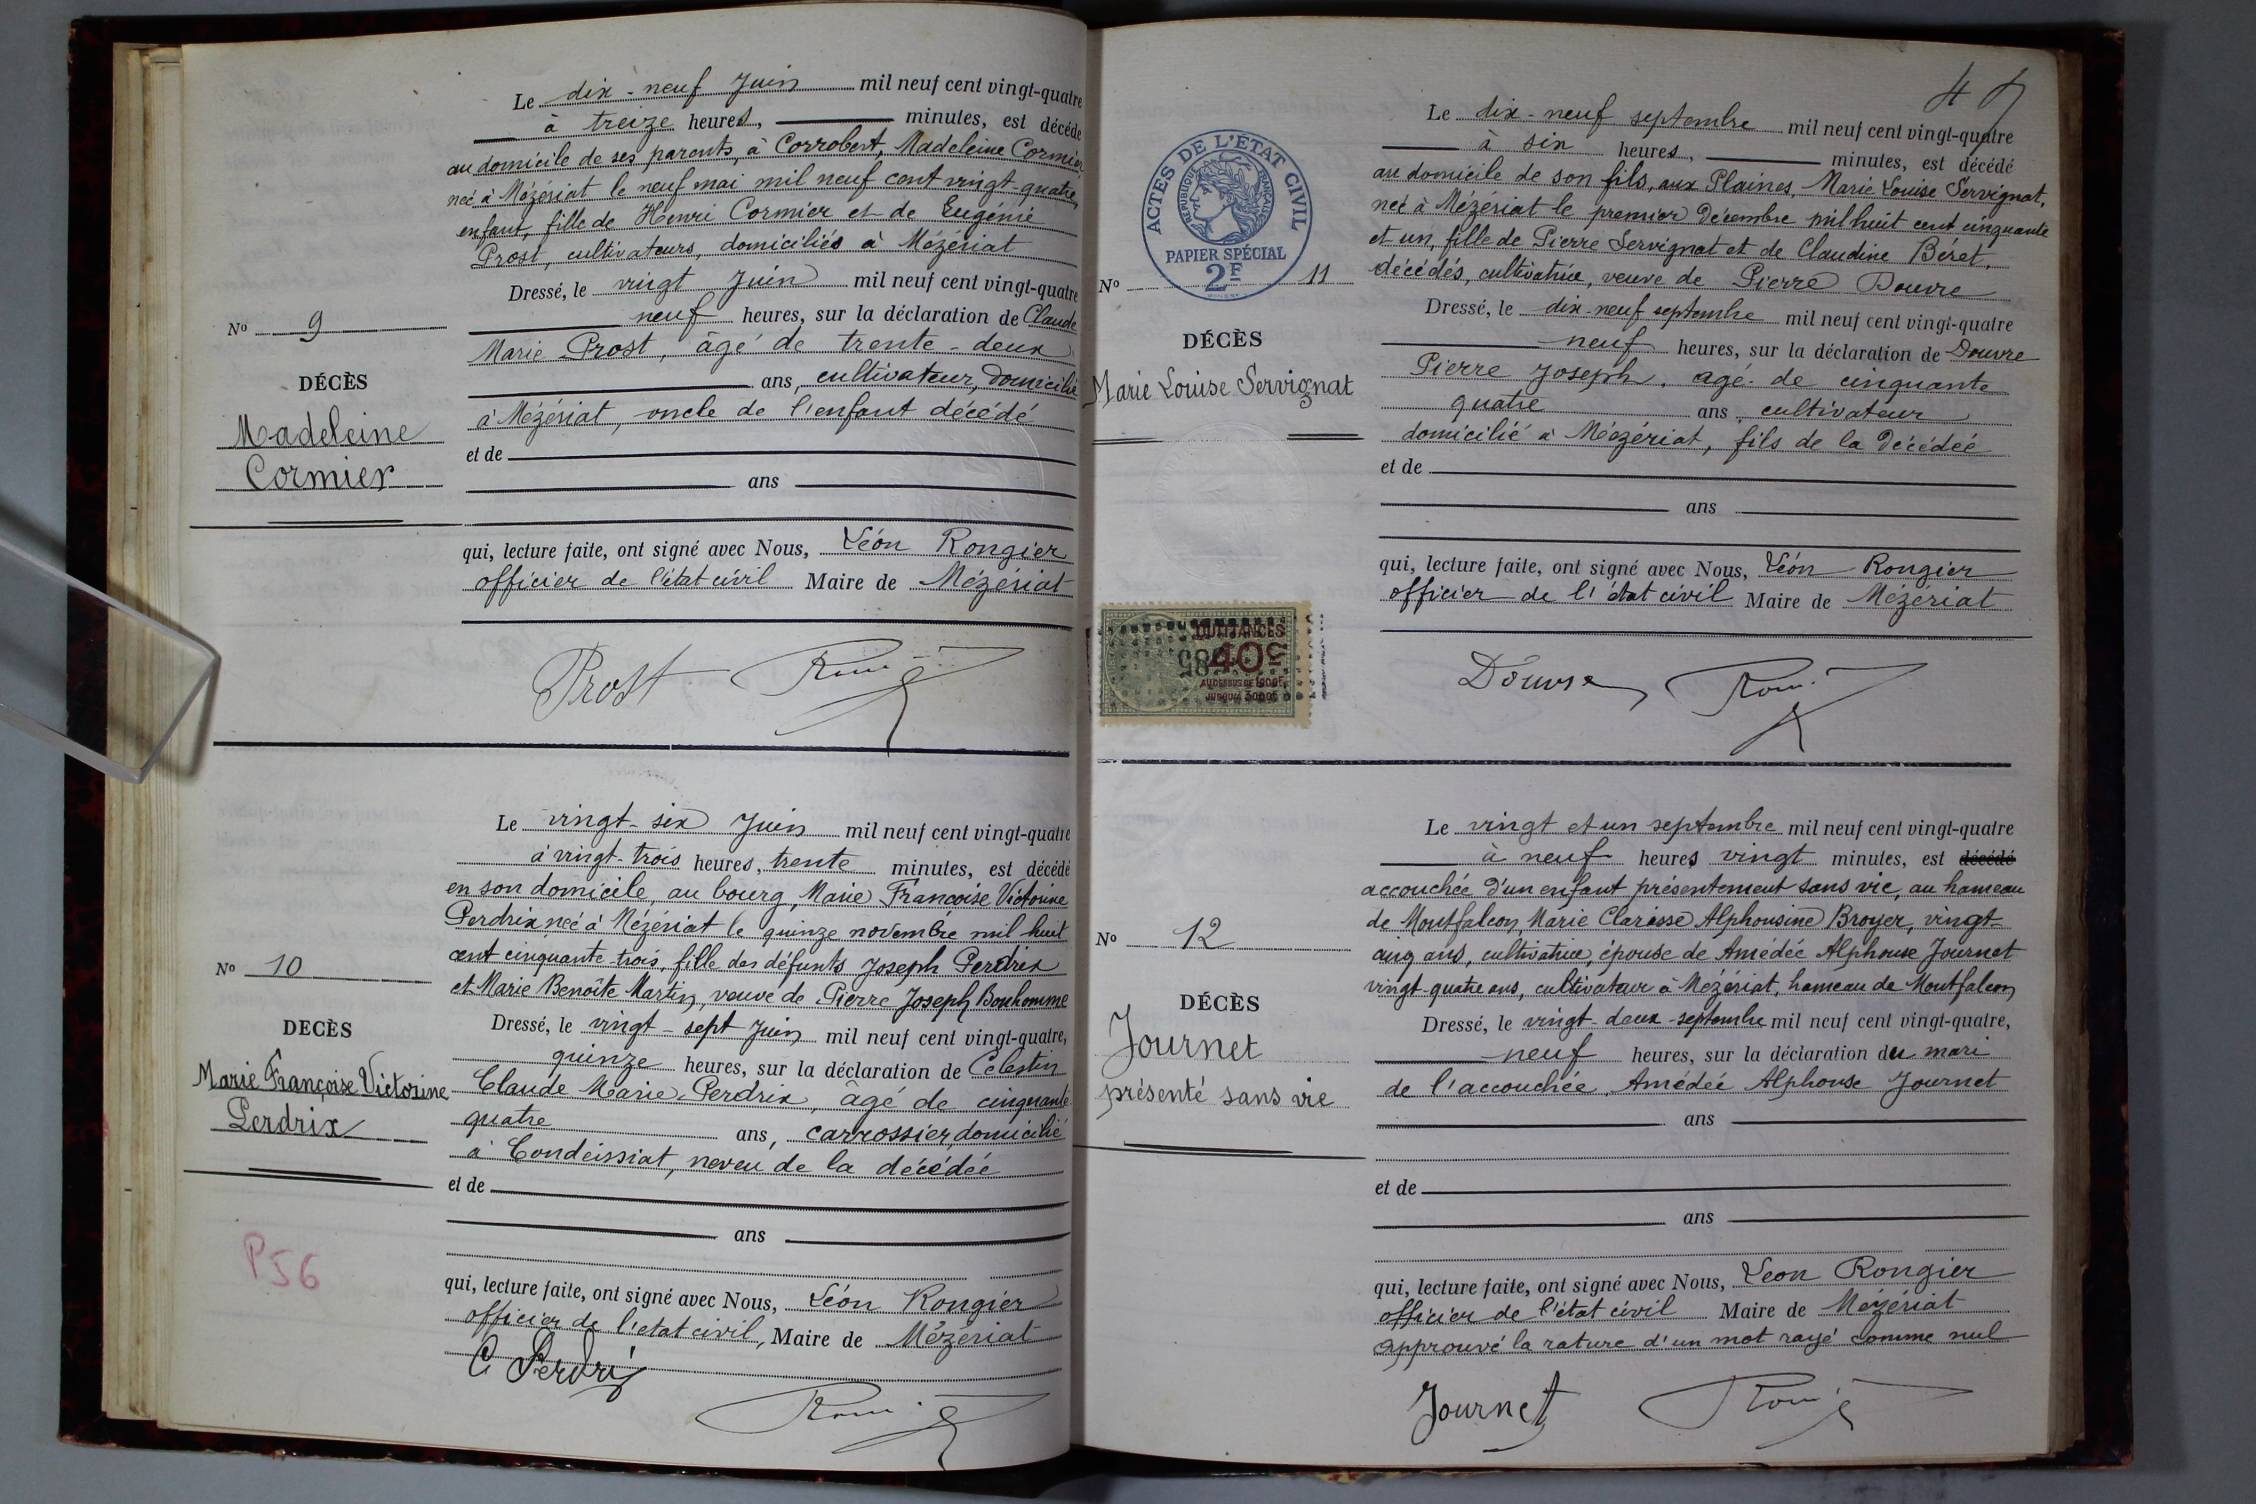 Le dix-neuf Juin mil neuf cent vingt-quatre
à treize heures, minutes, est décédé
au domicile de ses parents, à Corrobert, Madeleine Cormier
née à Mézériat le neuf mai mil neuf cent vingt-quatre,
enfant, fille de Henri Cormier et de Eugénie
Prost, cultivateurs, domiciliés à Mézériat
Dressé, le vingt Juin mil neuf cent vingt-quatre
neuf heures, sur la déclaration de Claude
Marie Prost, âgé de trente-deux
ans, cultivateur, domicilié
à Mézériat, oncle de l'enfant décédé
et de
ans
qui, lecture faite, ont signé avec Nous, Léon Rongier
officier de l'état civil Maire de Mézériat
Nº 9
DÉCÈS
Madeleine
Cormier
Prost
Le vingt-six Juin mil neuf cent vingt-quatre
à vingt-trois heures, trente minutes, est décédé
en son domicile, au bourg, Marie Françoise Victorine
Perdrix née à Mézériat le quinze novembre mil huit
cent cinquante-trois, fille des défunts Joseph Perdrix
et Marie Benoîte Martin, veuve de Pierre Joseph Bonhomme
Dressé, le vingt-sept Juin mil neuf cent vingt-quatre,
quinze heures, sur la déclaration de Célestin
Claude Marie Perdrix, âgé de cinquante
quatre ans, carrossier, domicilié
à Condeissiat, neveu de la décédée
et de
ans
qui, lecture faite, ont signé avec Nous, Léon Rongier
officier de l'etat civil, Maire de Mézériat
Nº 10
DECÈS
Marie Françoise Victorine
Perdrix
P56
C Perdrix
ACTES DE L'ÉTAT CIVIL
RÉPUBLIQUE FRANÇAISE
PAPIER SPÉCIAL
2F
Nº 11
DÉCÈS
Marie Louise Servignat
Le dix-neuf septembre mil neuf cent vingt-quatre
à six heures, minutes, est décédé
au domicile de son fils, aux Plaines, Marie Louise Servignat,
née à Mézériat le premier Décembre mil huit cent cinquante
et un, fille de Pierre Servignat et de Claudine Béret,
décédés, cultivatrice, veuve de Pierre Douvre
Dressé, le dix-neuf septembre mil neuf cent vingt-quatre
neuf heures, sur la déclaration de Douvre
Pierre Joseph, agé de cinquante
quatre ans, cultivateur
domicilié à Mézériat, fils de la décédée
et de
ans
qui, lecture faite, ont signé avec Nous, Léon Rongier
officier de l'état civil Maire de Mézériat
QUITTANCES
40c
AU DESSUS DE 1000F
JUSQU'À 3000F
Douvre
Le vingt et un septembre mil neuf cent vingt-quatre
à neuf heures vingt minutes, est décédé
accouchée d'un enfant présentement sans vie, au hameau
de Montfalcon, Marie Clarisse Alphonsine Broyer, vingt-
cinq ans, cultivatrice, épouse de Amédée Alphonse Journet
vingt-quatre ans, cultivateur à Mézériat, hameau de Montfalcon
Dressé, le vingt-deux septembre mil neuf cent vingt-quatre,
neuf heures, sur la déclaration du mari
de l'accouchée, Amédée Alphonse Journet
ans
et de
ans
qui, lecture faite, ont signé avec Nous, Leon Rongier
officier de l'état civil Maire de Mézériat
approuvé la rature d'un mot rayé comme nul
Nº 12
DÉCÈS
Journet
présenté sans vie
Journet